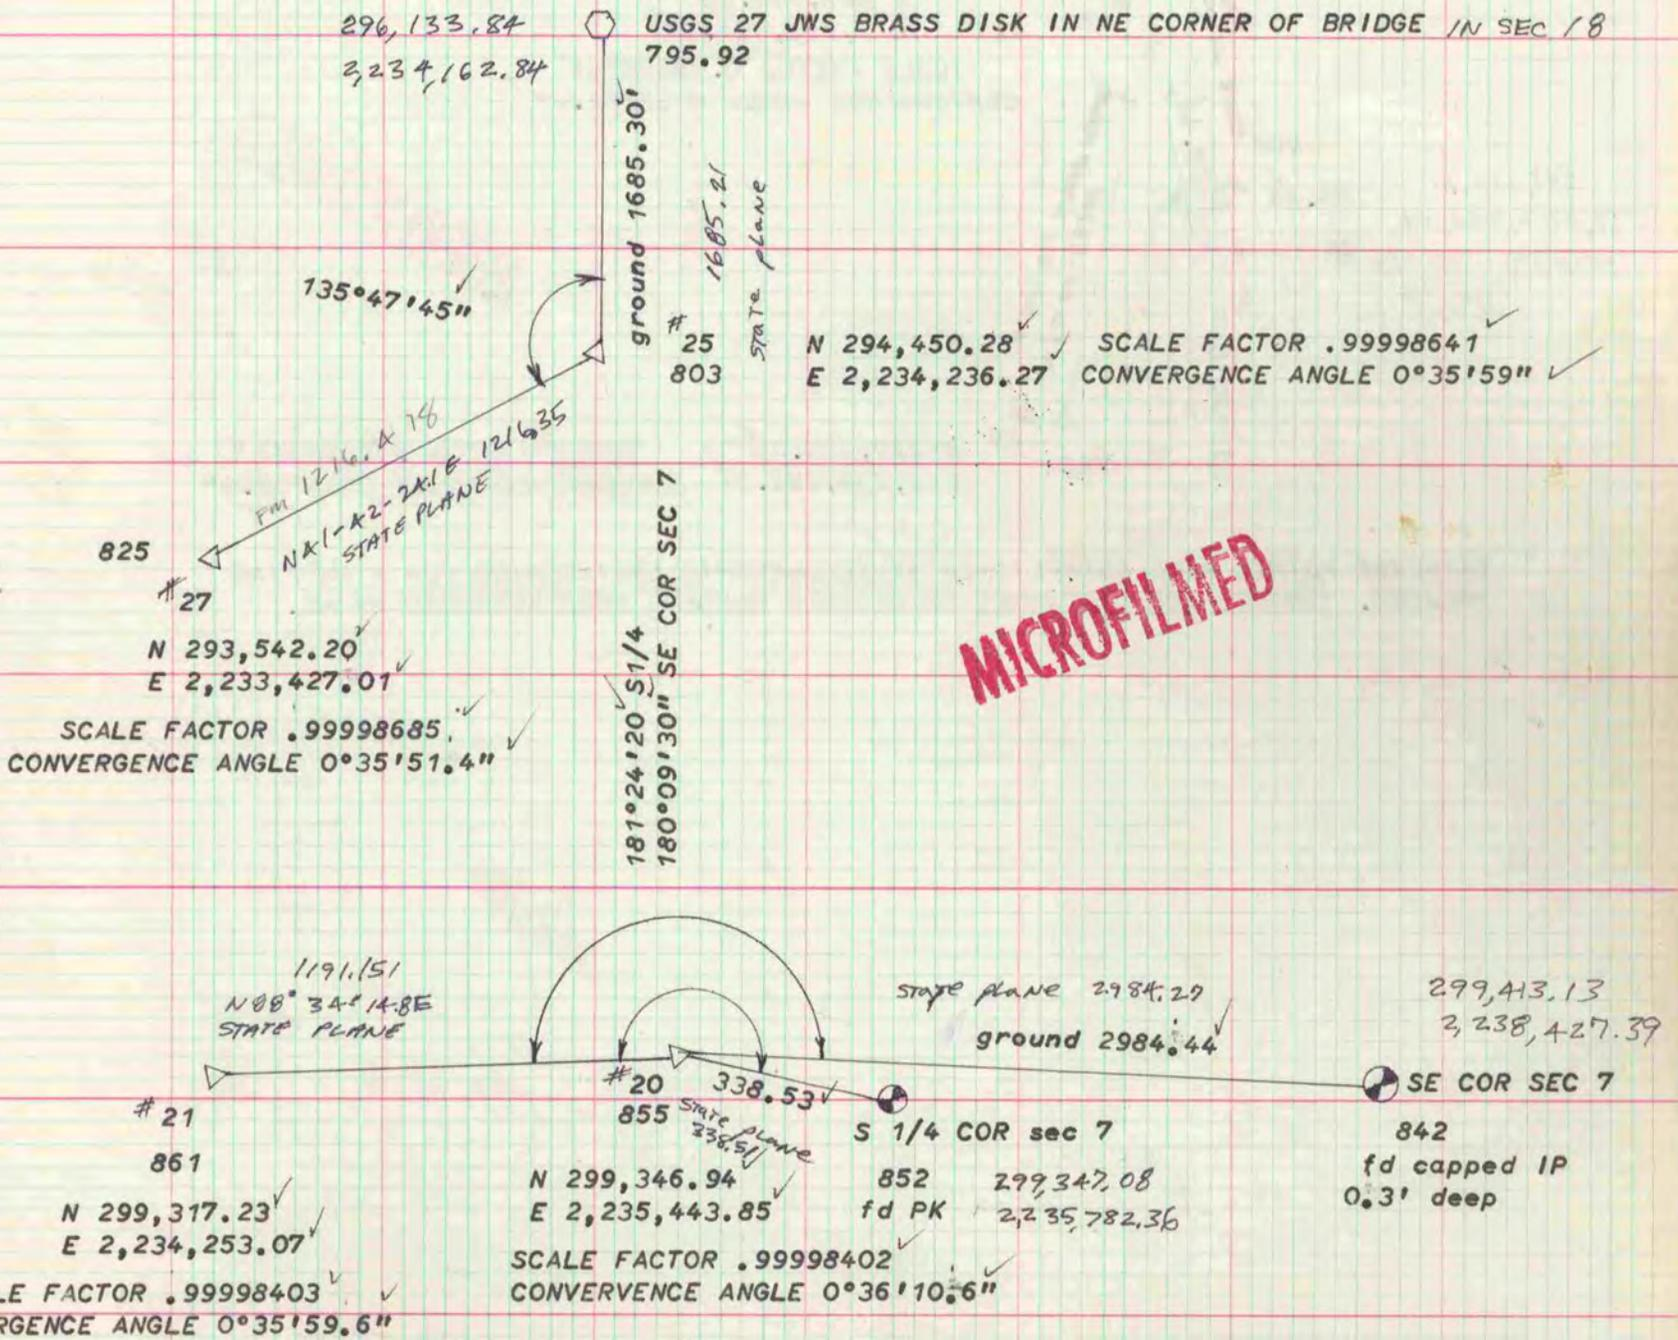 296,133.84
2,234,162.84
USGS 27 JWS BRASS DISK IN NE CORNER OF BRIDGE IN SEC 18
795.92
ground 1685.30'
1685.21
state plane
135°47'45"
#25
803
N 294,450.28 SCALE FACTOR .99998641
E 2,234,236.27 CONVERGENCE ANGLE 0°35'59"
FM 1216.478
N41-42-24.1E 1216.35
STATE PLANE
825
#27
N 293,542.20
E 2,233,427.01
SCALE FACTOR .99998685
CONVERGENCE ANGLE 0°35'51.4"
181°24'20 S1/4
180°09'30" SE COR SEC 7
MICROFILMED
1191.151
N88° 34' 14.8E
STATE PLANE
state plane 2984.27
ground 2984.44
299,413.13
2,238,427.39
#21
861
N 299,317.23
E 2,234,253.07
LE FACTOR .99998403
RGENCE ANGLE 0°35'59.6"
#20
855
338.53
state plane
338.51
N 299,346.94
E 2,235,443.85
SCALE FACTOR .99998402
CONVERVENCE ANGLE 0°36'10.6"
S 1/4 COR sec 7
852
fd PK
299,347.08
2,235,782.36
SE COR SEC 7
842
fd capped IP
0.3' deep